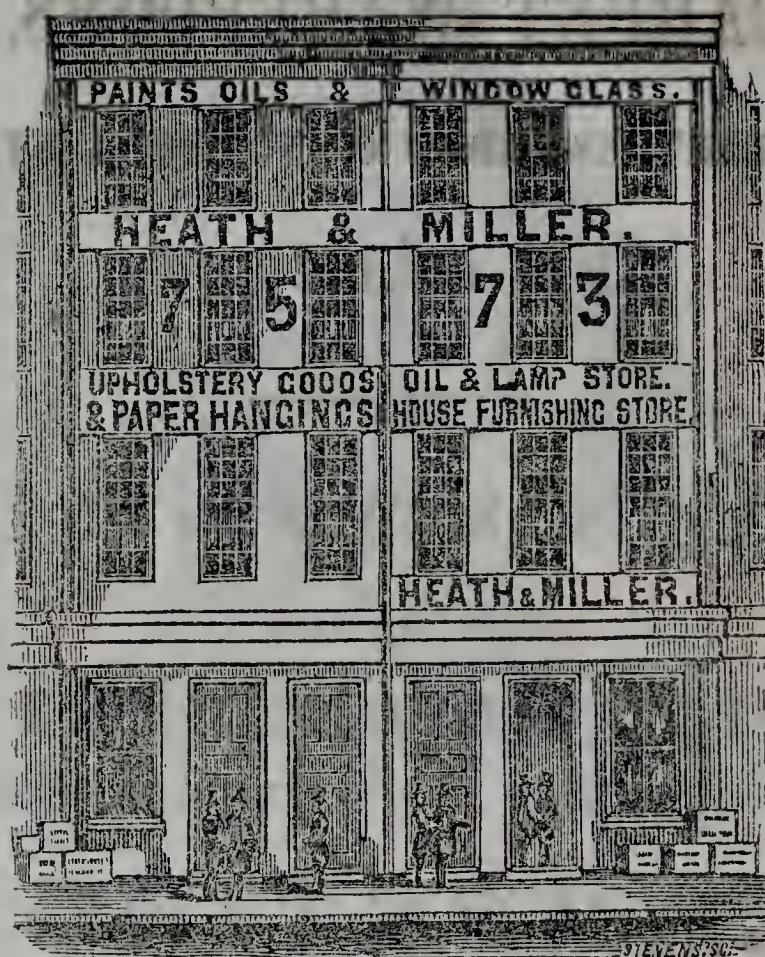 PAINTS OILS & WINDOW GLASS.
HEATH & MILLER.
75 73
UPHOLSTERY GOODS
& PAPER HANGINGS
OIL & LAMP STORE.
HOUSE FURNISHING STORE.
HEATH & MILLER.
STEVENS, SC.